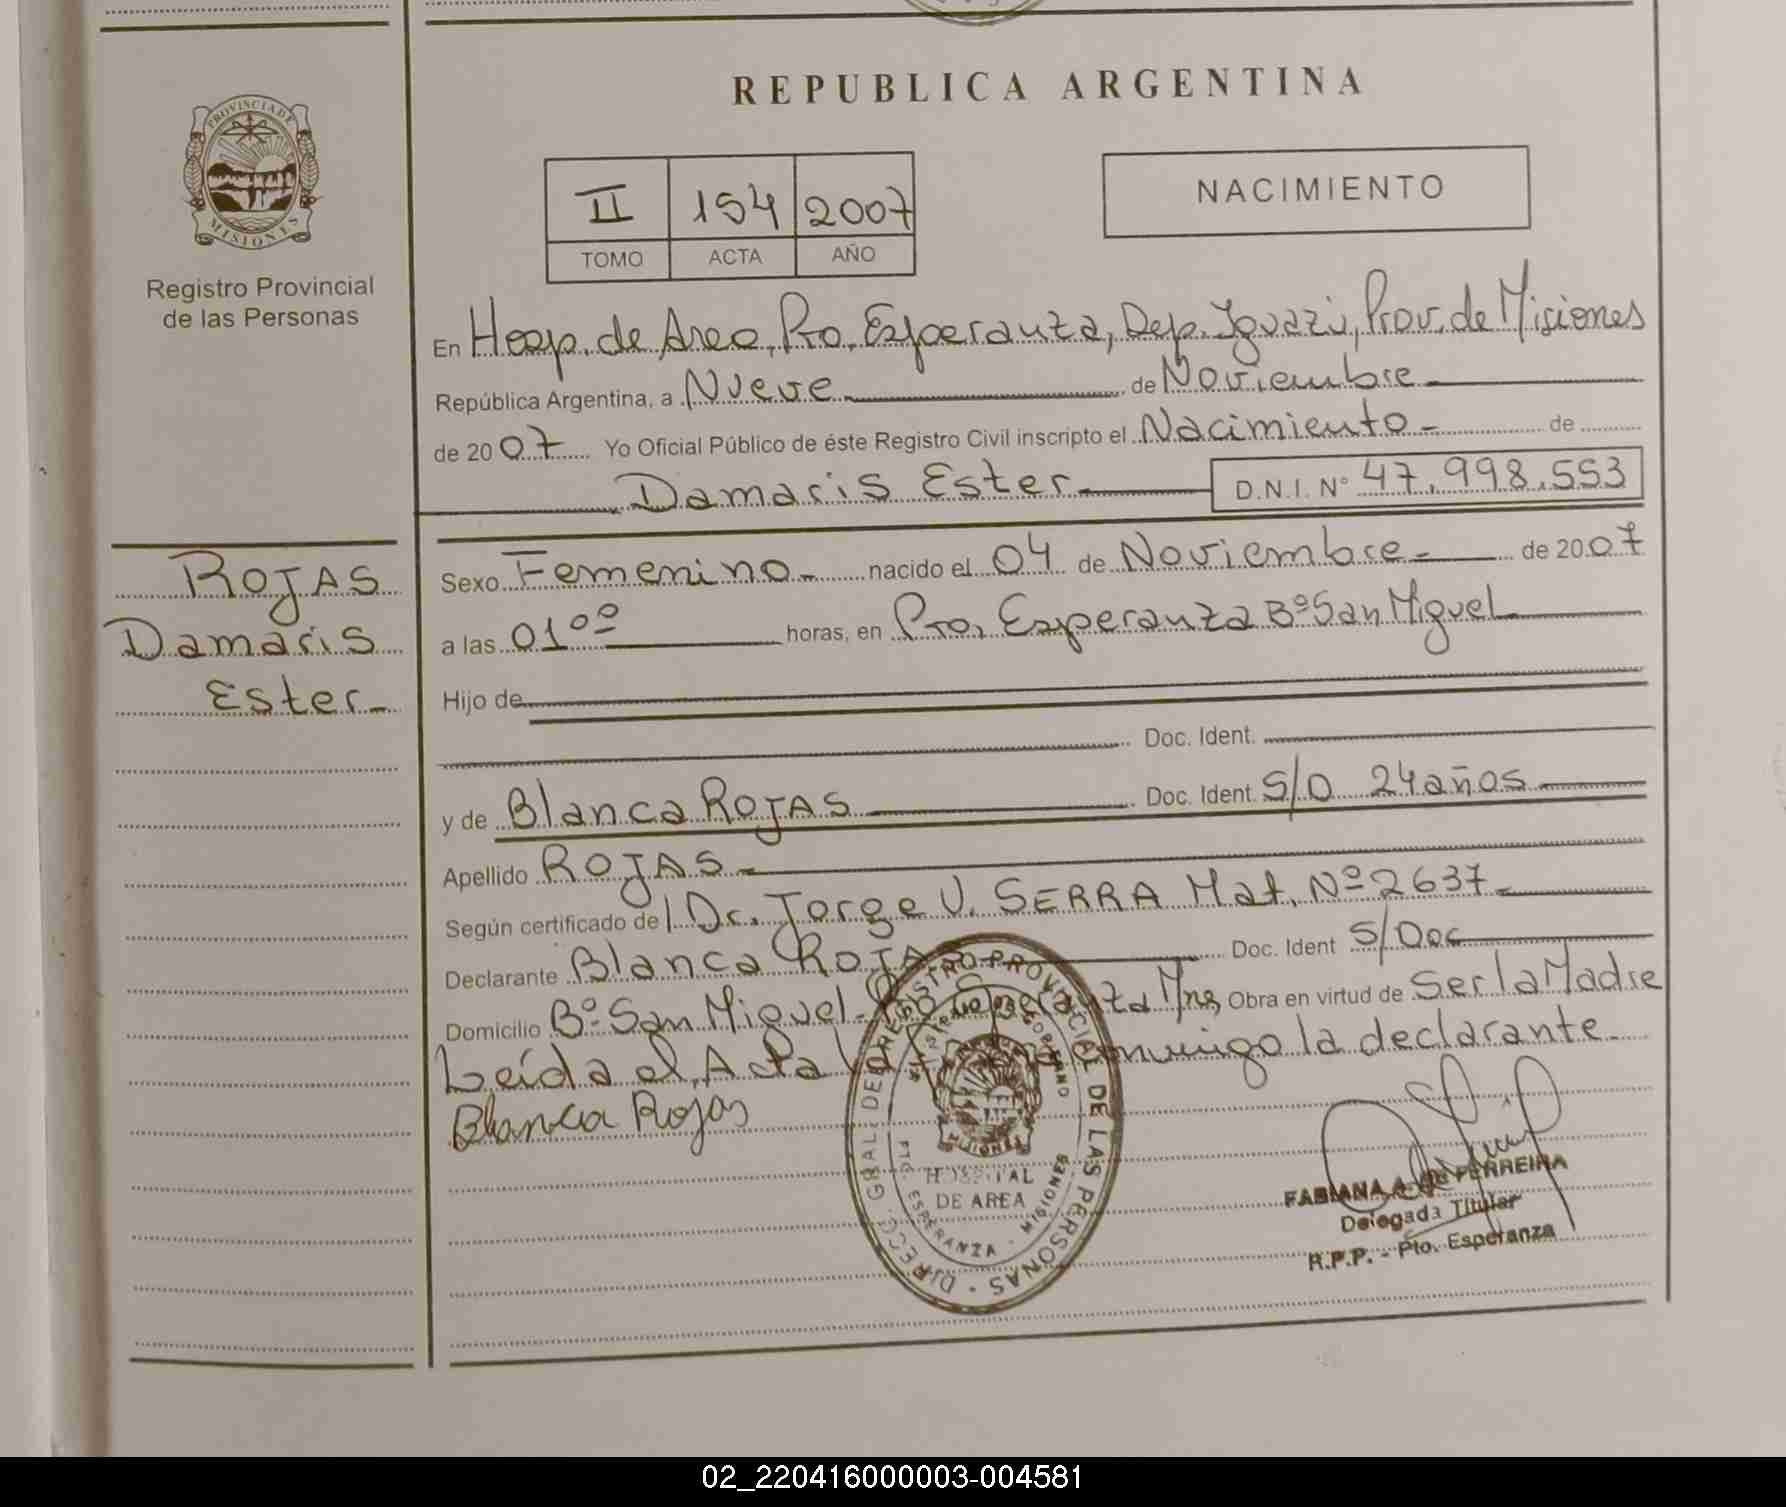 REPUBLICA ARGENTINA
PROVINCIA DE
MISIONES
Registro Provincial
de las Personas
II 154 2007
TOMO ACTA AÑO
NACIMIENTO
En Hosp. de Area, Pto. Esperanza, Dep. Iguazú, Prov. de Misiones
República Argentina, a Nueve de Noviembre
de 2007 Yo Oficial Público de éste Registro Civil inscripto el Nacimiento - de
Damaris Ester D.N.I. N° 47.998.553
ROJAS
Damaris
Ester
Sexo Femenino nacido el 04 de Noviembre de 2007
a las 01ºº horas, en Pto. Esperanza Bº San Miguel
Hijo de
Doc. Ident.
y de Blanca ROJAS Doc. Ident. S/D 24 años
Apellido ROJAS
Según certificado de Dr. Jorge V. SERRA Mat. Nº 2637
Declarante Blanca ROJAS Doc. Ident S/Doc
Domicilio Bº San Miguel - Pto Esperanza Mnes Obra en virtud de ser la Madre
Leída el Acta la conmigo la declarante
Blanca Rojas
REGISTRO PROVINCIAL DE LAS PERSONAS
HOSPITAL
DE AREA
ESPERANZA - MISIONES
FABIANA A. de FERREIRA
Delegada Titular
R.P.P. - Pto. Esperanza
02_220416000003-004581